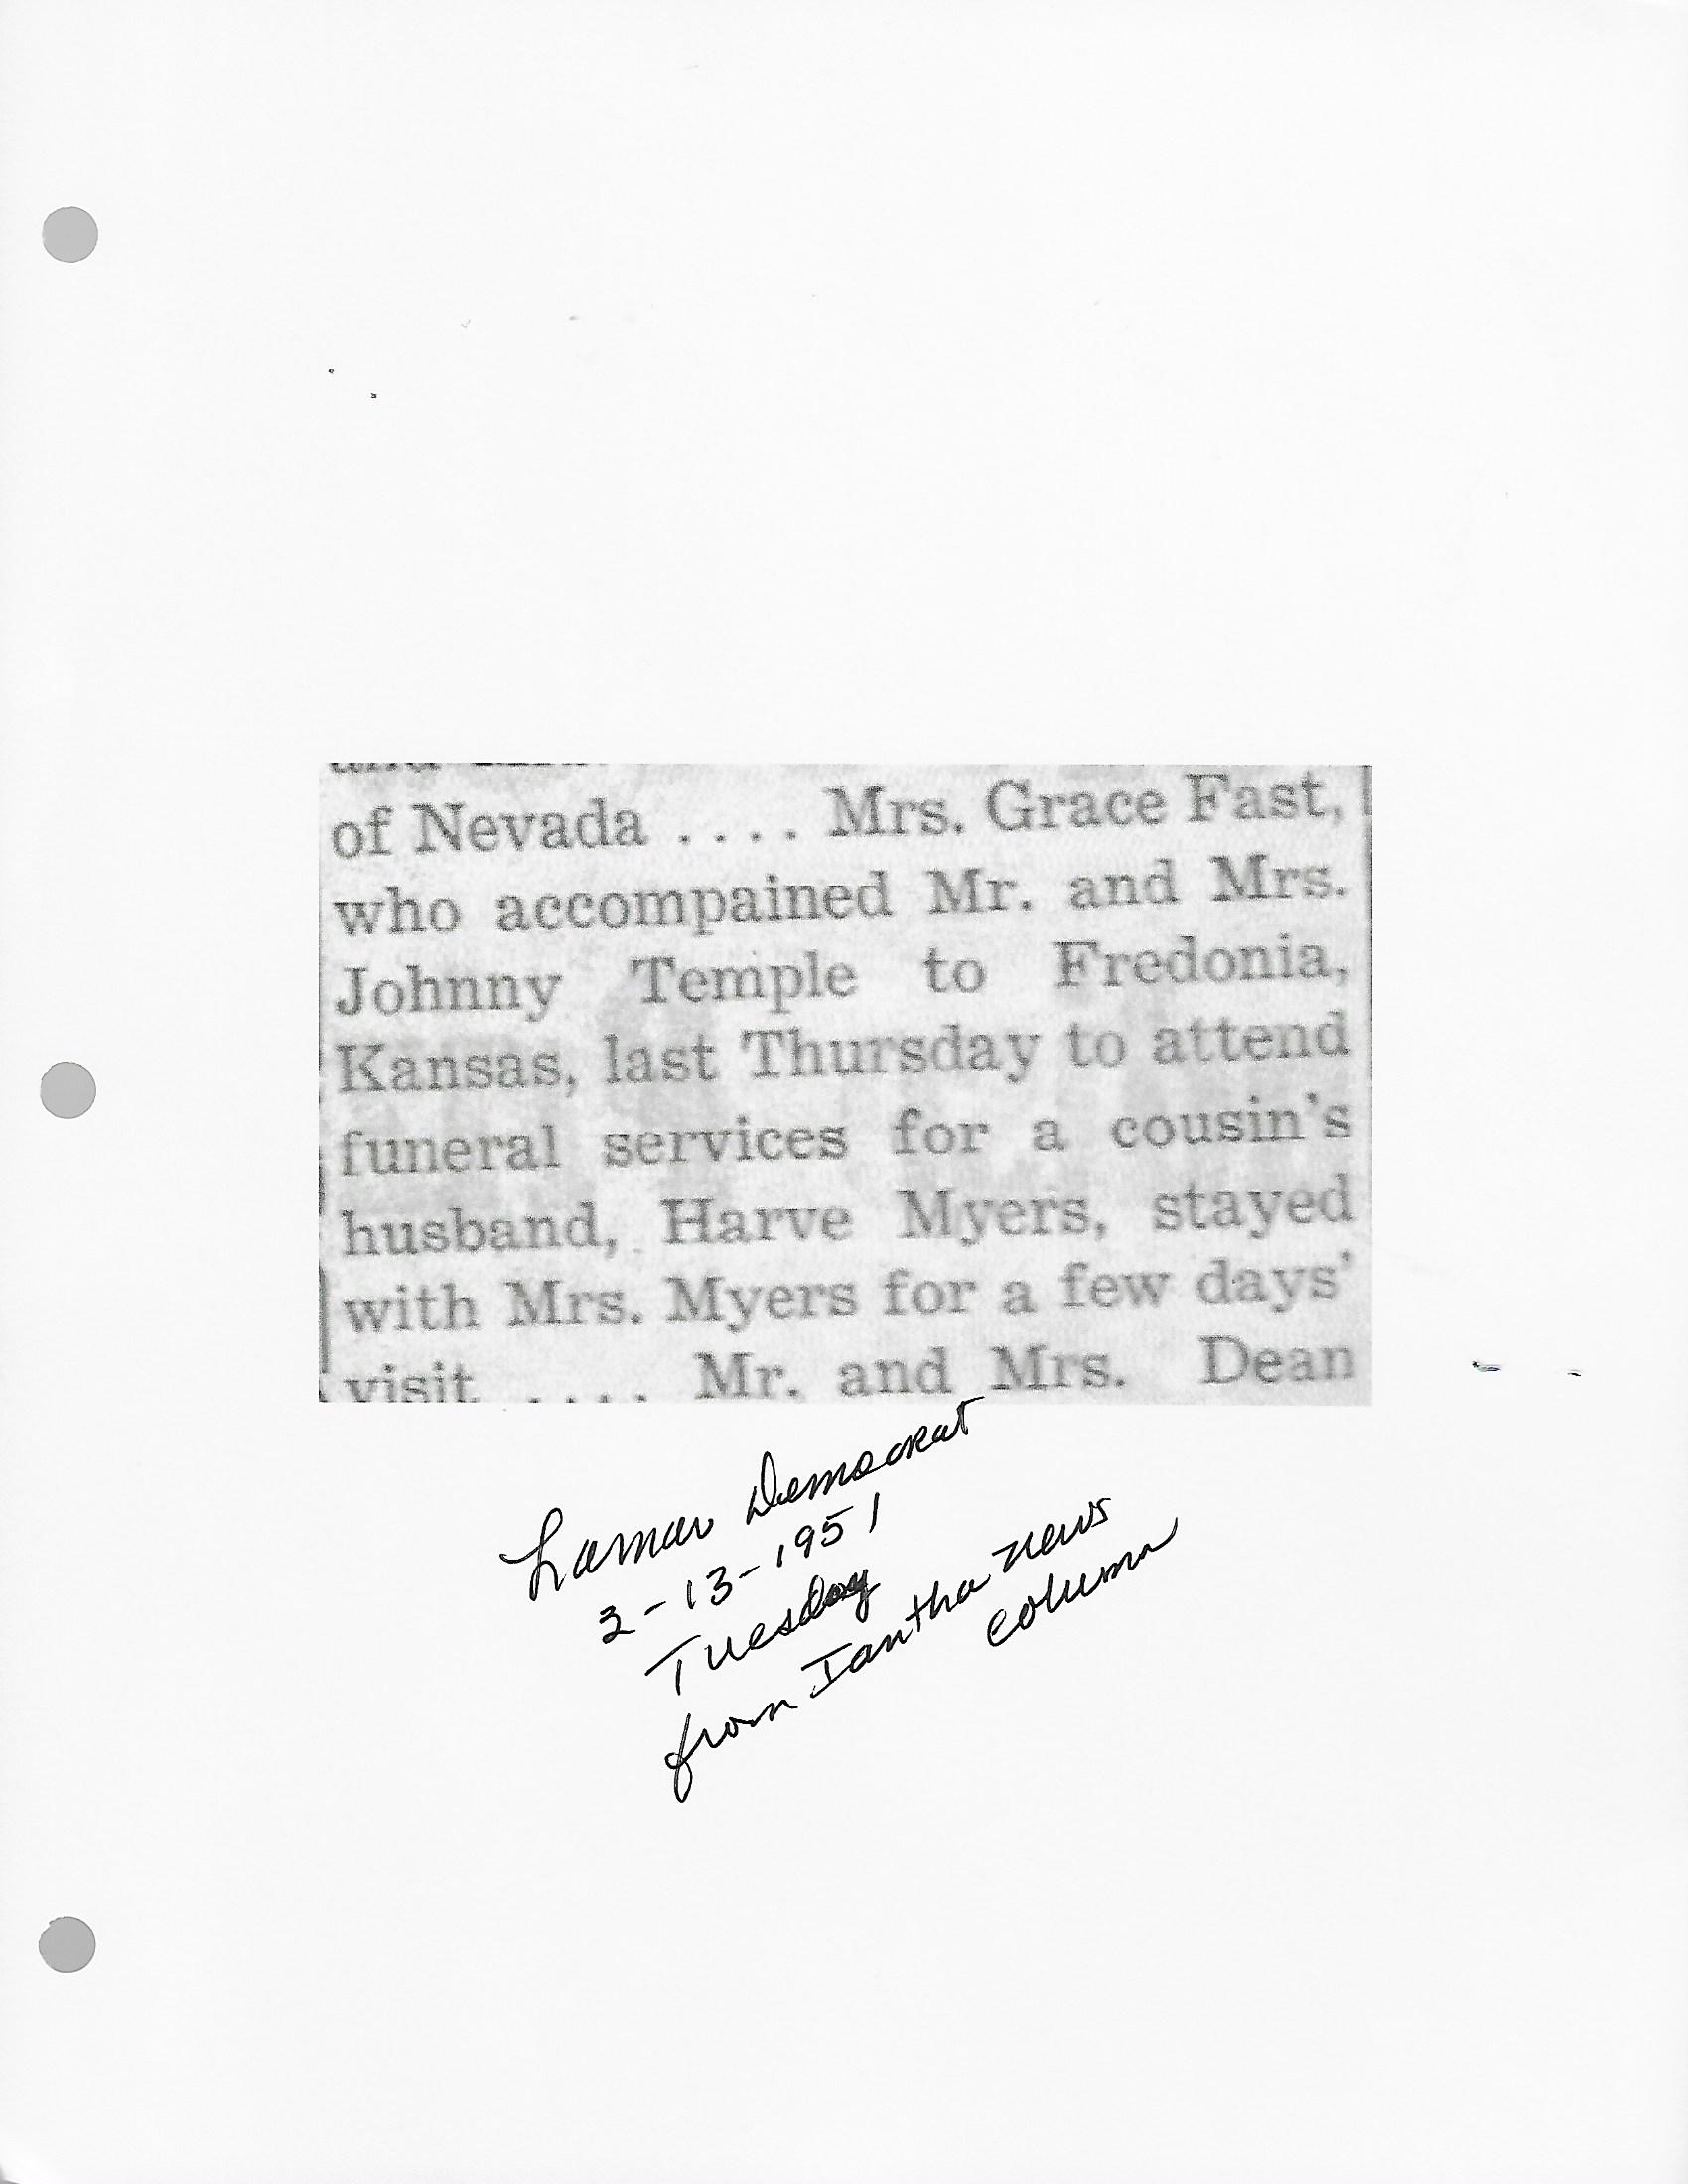 of Nevada . . . . Mrs. Grace Fast,
who accompained Mr. and Mrs.
Johnny Temple to Fredonia,
Kansas, last Thursday to attend
funeral services for a cousin's
husband, Harve Myers, stayed
with Mrs. Myers for a few days'
visit . . . . Mr. and Mrs. Dean
Lamar Democrat
2-13-1951
Tuesday
from Iantha news
column